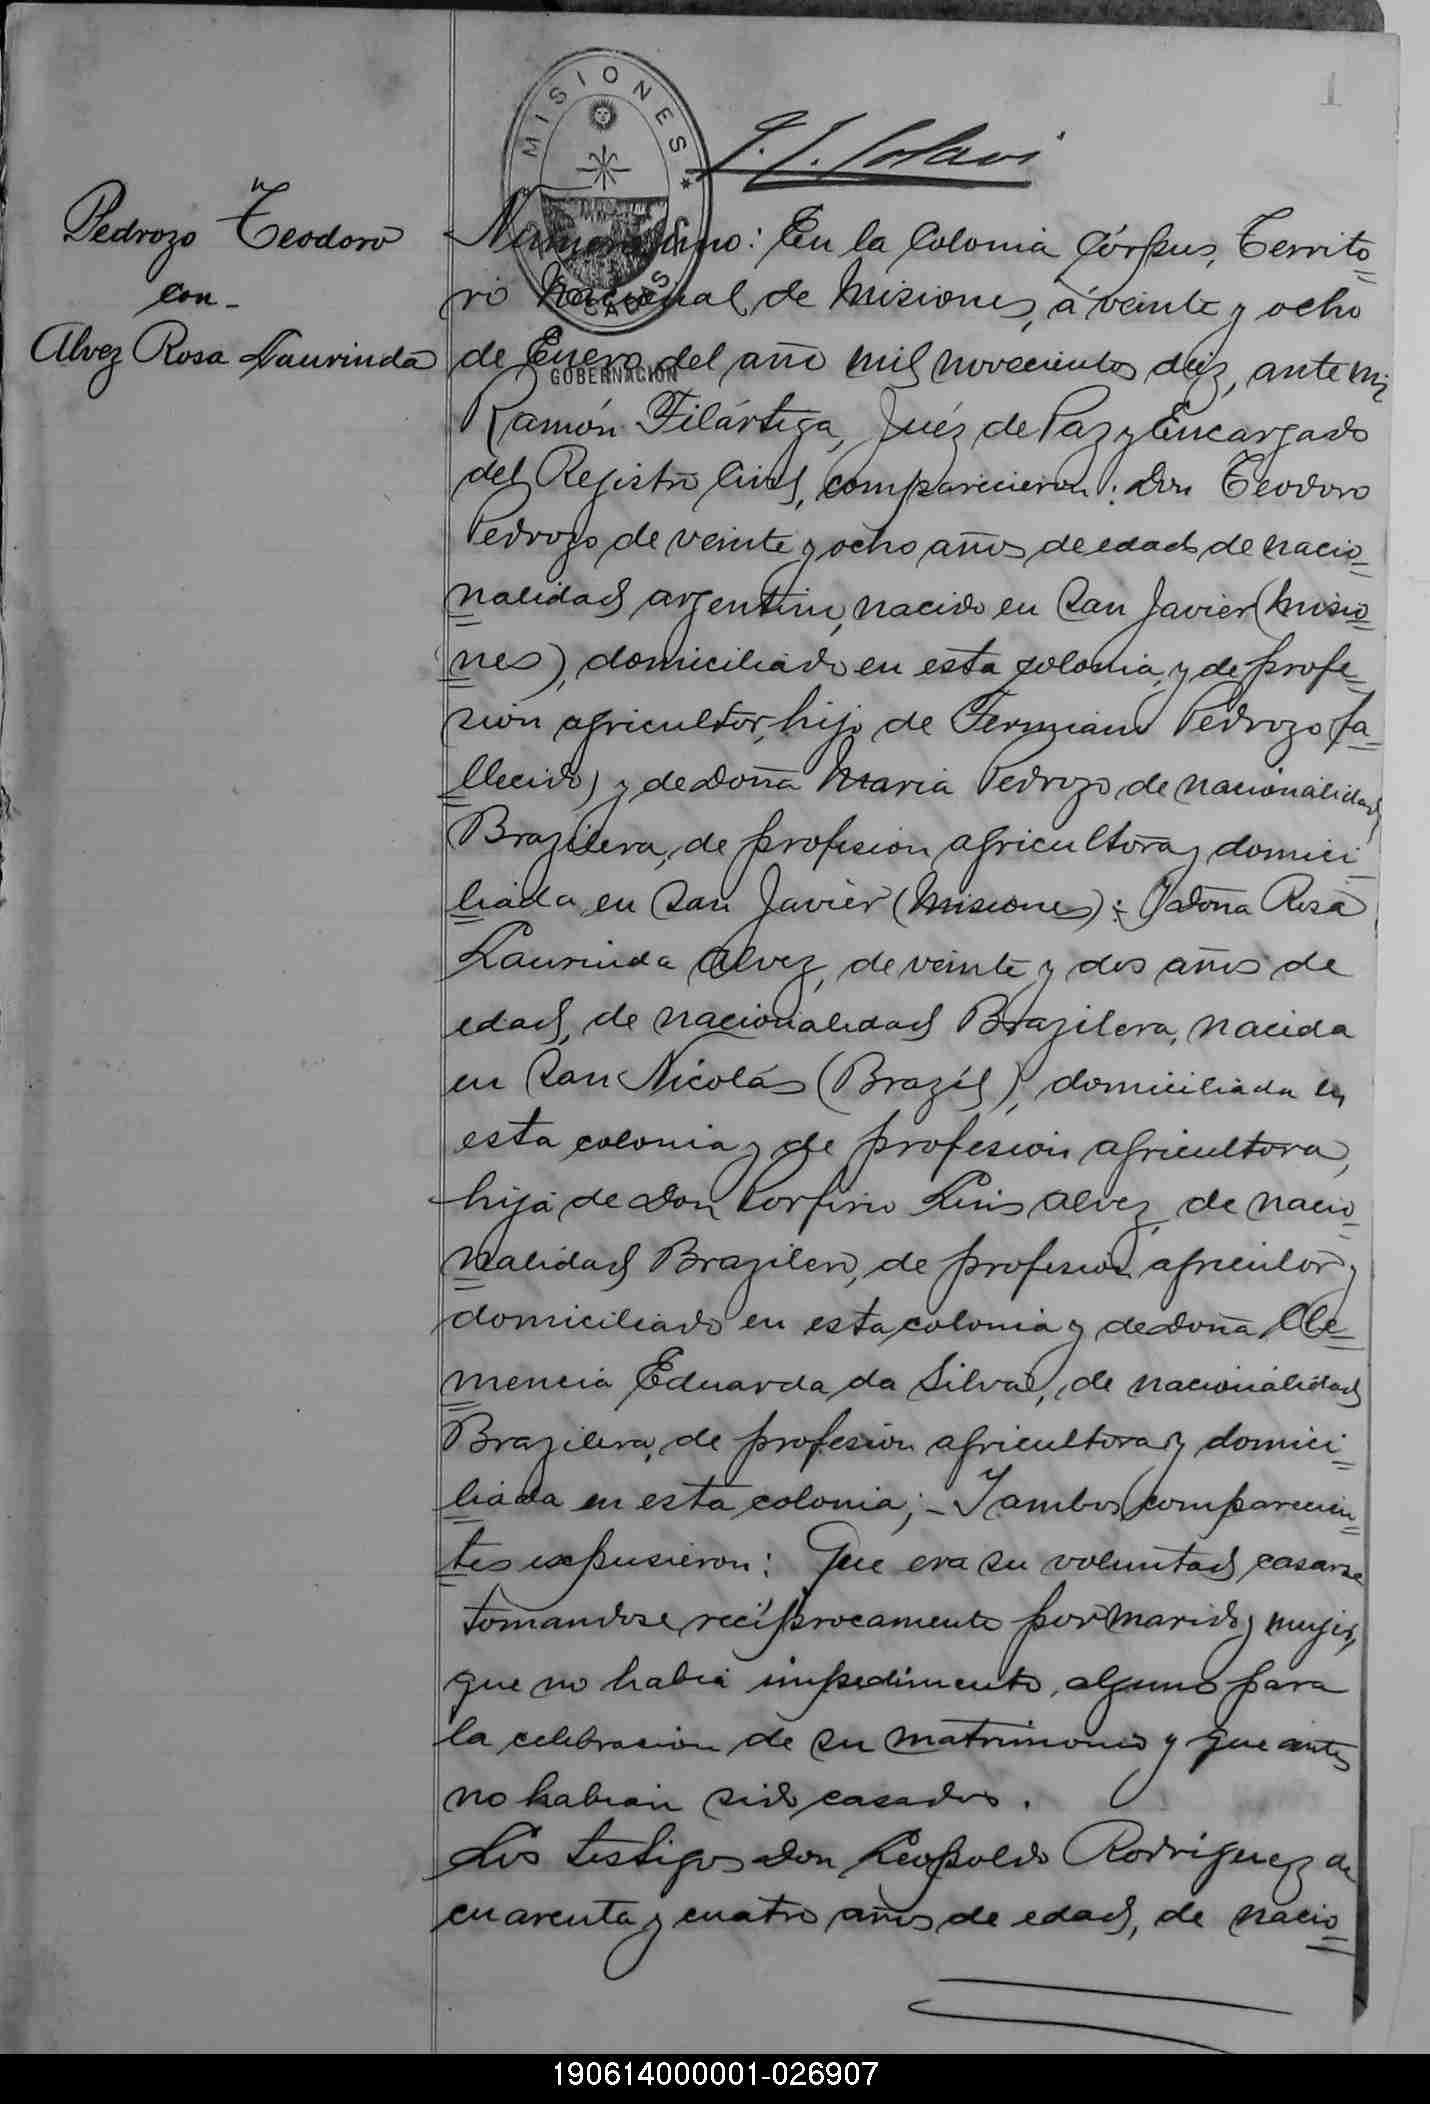 1
MISIONES
GOBERNACION
Pedrozo Teodoro
con
Alvez Rosa Laurinda
Numero uno: En la Colonia Córpus, Territo=
rio Nacional de Misiones, á veinte y ocho
de Enero del año mil novecientos diez, ante mi
Ramón Filártiga, Juéz de Paz y Encargado
del Registro Civil, comparecieron: Don Teodoro
Pedrozo de veinte y ocho años de edad de nacio=
nalidad argentino, nacido en San Javier (Misio=
nes), domiciliado en esta colonia, y de profe=
sion agricultor, hijo de Pedrozo (fa=
llecido) y de doña Maria Pedrozo de nacionalidad
Brazilera, de profesion agricultora y domici
liada en San Javier (Misiones): Y doña Rosa
Laurinda Alvez, de veinte y dos años de
edad, de nacionalidad Brazilera, nacida
en San Nicolás (Brazíl), domiciliada en
esta colonia y de profesion agricultora,
hija de Don Porfirio Luis Alvez, de nacio=
nalidad Brazilero, de profesion agricultor y
domiciliado en esta colonia y de doña Cle=
mencia Eduarda da Silva, de nacionalidad
Brazilera, de profesion agricultora y domici=
liada en esta colonia; - Y ambos comparecien=
tes expusieron: Que era su voluntad casarse
tomandose recíprocamente por marido y mujer,
que no habia impedimento alguno para
la celebracion de su matrimonio y que antes
no habian sido casados.
Los testigos don Leopoldo Rodriguez de
cuarenta y cuatro años de edad, de nacio=
190614000001-026907